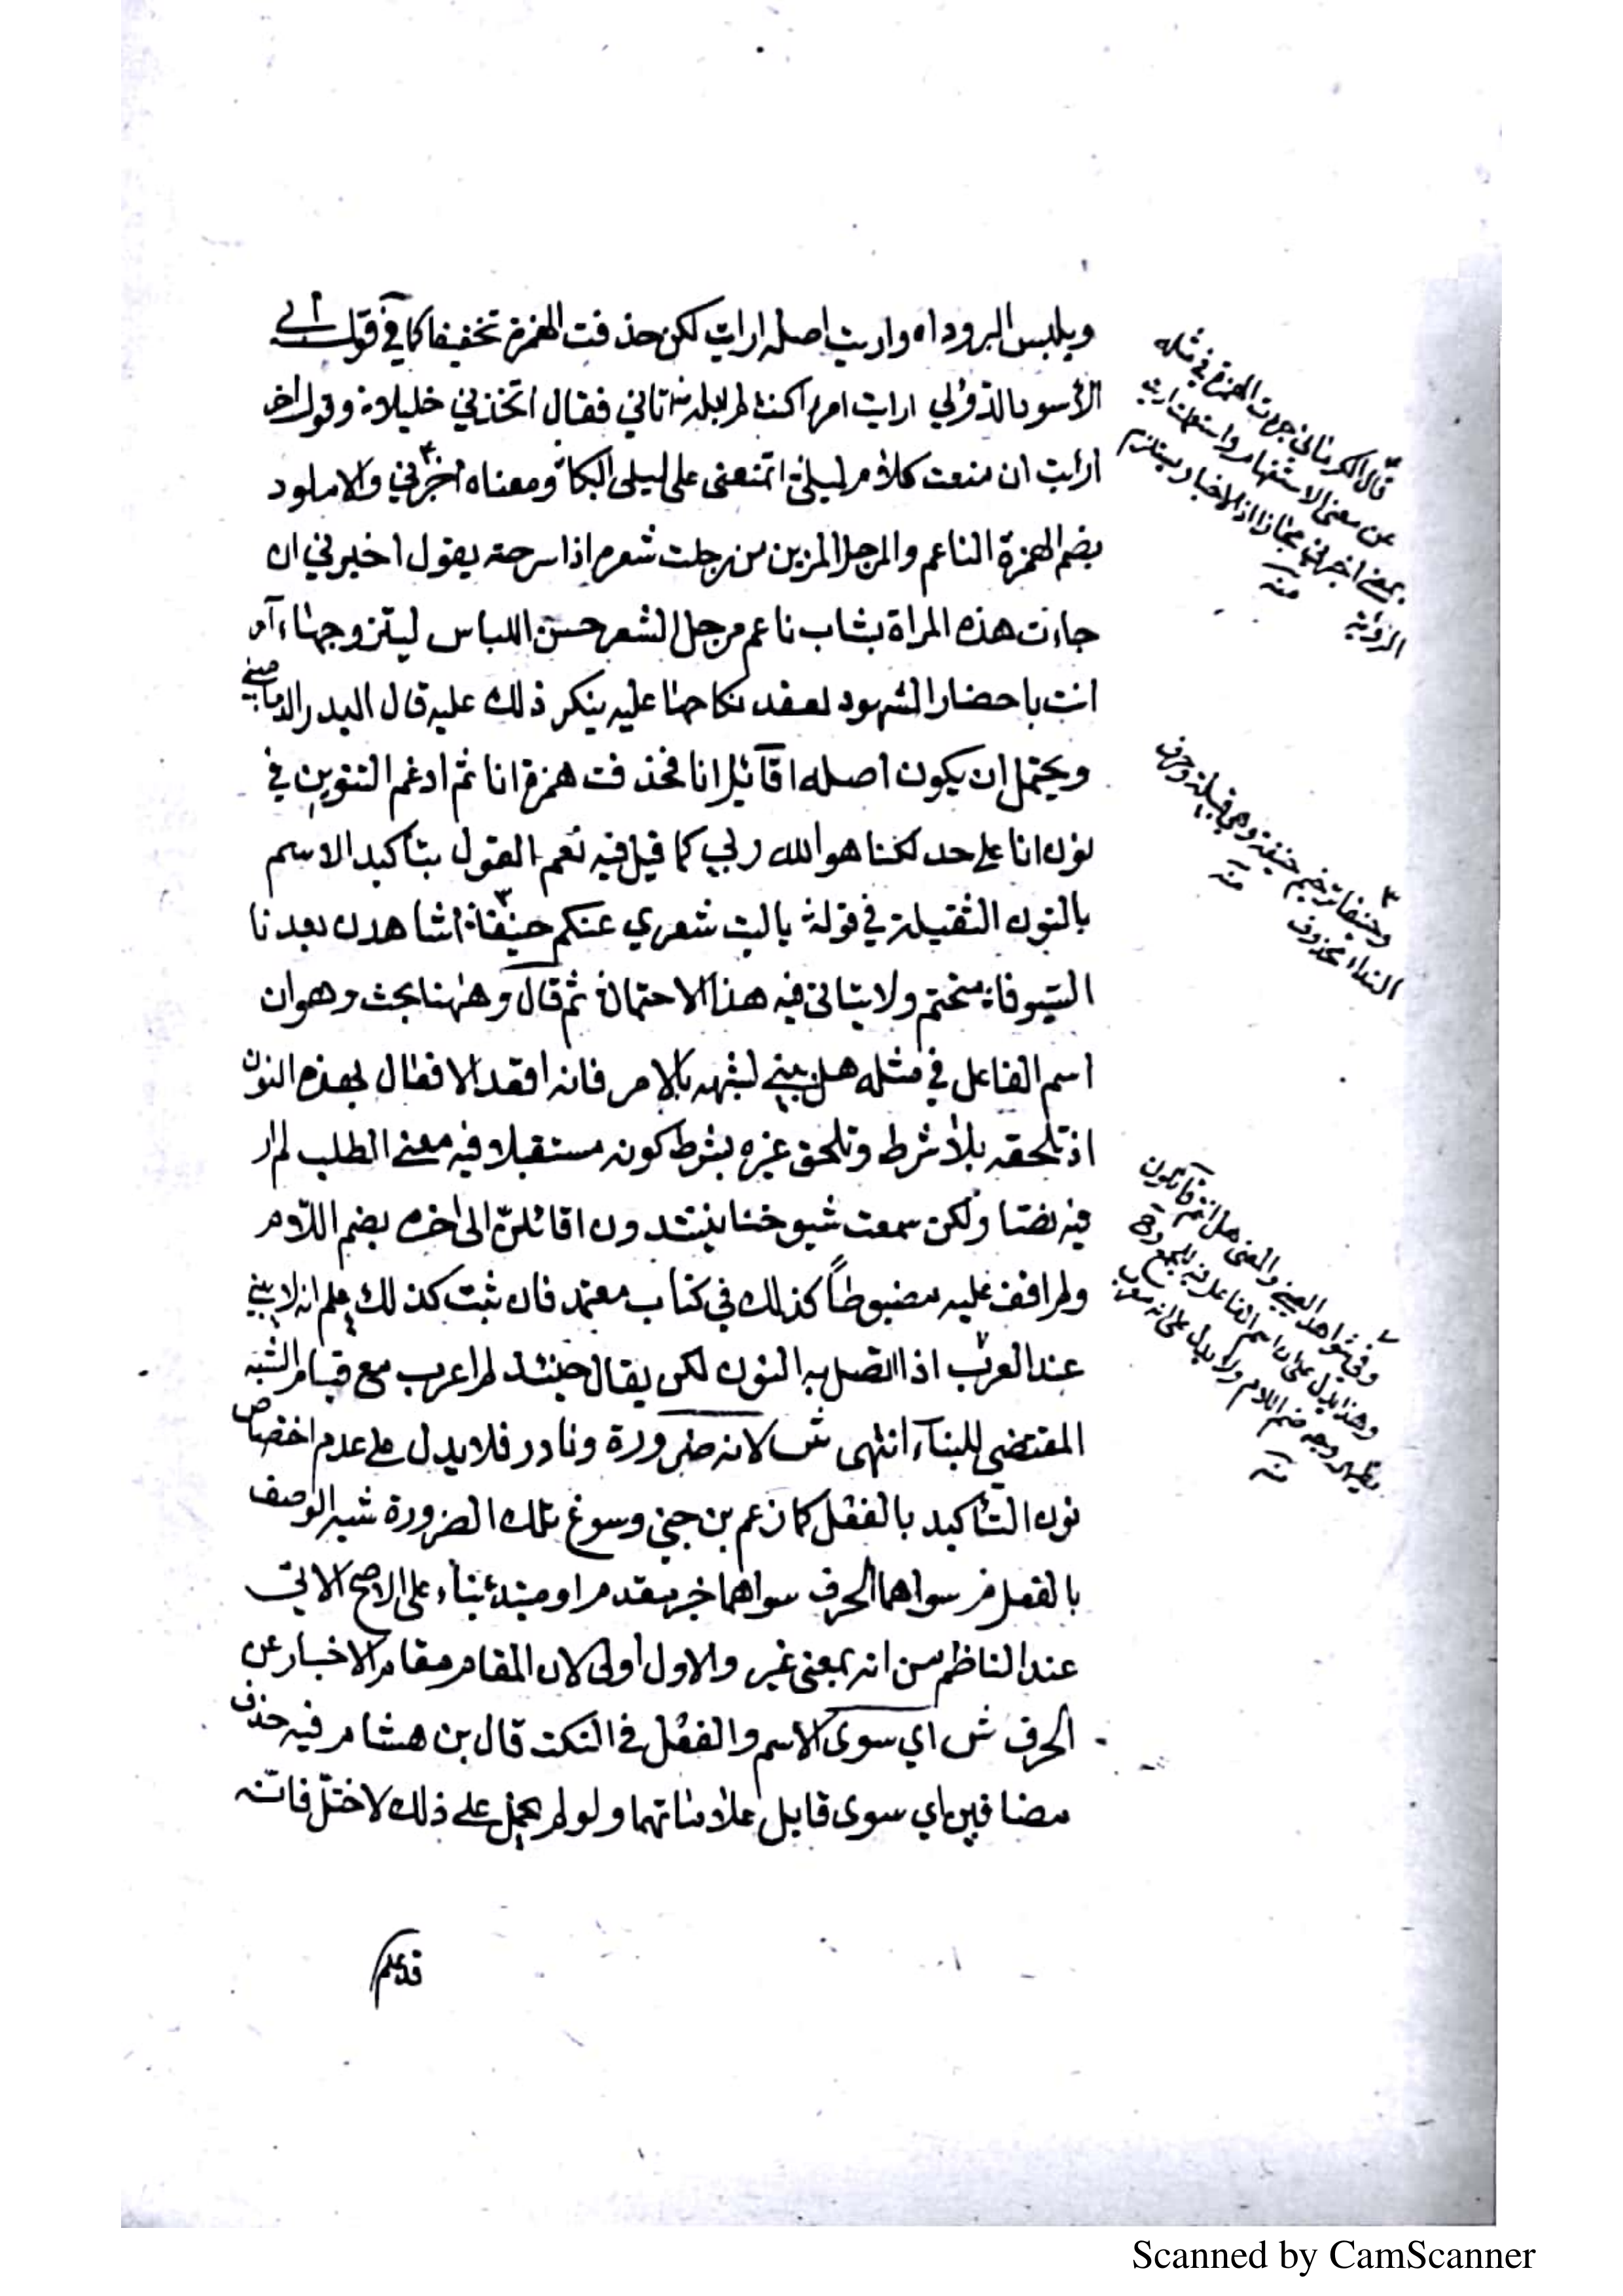 ويلبس البرودا اه واريت اصله ارايت لكن حذفت الهمزة تخفيفا كما في قول ابي
الأسود الدؤلي ارايت امرا كنت لم ابله اتاني فقال اتخذني خليلا وقول اخر
ارايت ان منعت كلام ليلى اتمنعنى على ليلى البكا ومعناه اخبرني والاملود
بضم الهمزة الناعم والمرجل المزين من رجلت شعره اذا سرحته يقول اخبرني ان
جاءت هذه المراة بشاب ناعم مرجل الشعر حسن اللباس ليتزوجها ءآمر
انت باحضار الشهود لعقد نكاحها عليه ينكر ذلك عليه قال البدر الدماميني
ويحتمل ان يكون اصله اقآئل انا فحذفت همزة انا ثم ادغم التنوين في
نون انا على حد لكنا هو الله ربي كما قيل فيه نعم القول بتاكيد الاسم
بالنون الثقيلة في قوله ياليت شعري عنكم حنيفا اشاهدن بعدنا
السيوفا متحتم ولا يتاتى فيه هذا الاحتمال ثم قال وههنا بحث وهو ان
اسم الفاعل في مثله هل بني لشبهه بالامر فانه اقعد الافعال بهذه النون
اذ تلحقه بلا شرط وتلحق غيره بشرط كونه مستقبلا فيه معنى الطلب لم ار
فيه نصا ولكن سمعت شيوخنا ينشدون اقائلن الى اخره بضم اللام
ولم اقف عليه مضبوطاً كذلك في كتاب معتمد فان ثبت كذلك علم انه لا يبنى
عند العرب اذا اتصل به النون لكن يقال حينئذ لم اعرب مع قيام الشبه
المقتضي للبنآء انتهى ش لانه ضرورة ونادر فلا يدل على عدم اختصاص
نون التأكيد بالفعل كما زعم بن جني وسوغ تلك الضرورة شبه الوصف
بالفعل م سواهما الحرف سواهما خبر مقدم او مبتدء بناء على الاصح الاتي
عند الناظم من انه بمعنى غير والاول اولى لان المقام مقام الاخبار عن
الحرف ش اي سوى الاسم والفعل في النكت قال بن هشام فيه حذف
مضافين اي سوى قابل علاماتهما ولو لم يحمل على ذلك لاختل فانه
قد علم
قال الكرماني جردت الهمزة في مثله
عن معنى الاستفهام واستعملت ارايت
بمعنى اخبرني مجازا اذ الاخبار يستلزم
الرؤية
منه
وحنيفا ترخيم حنيفة وهي قبيلة وحرف
النداء محذوف
منه
وفي شواهد العيني والمعنى هل انتم قآئلون
وهذا يدل على ان اسم الفاعل فيه للجمع
يظهر وجه ضم اللام ولا يدل على انه معرب
منه
Scanned by CamScanner